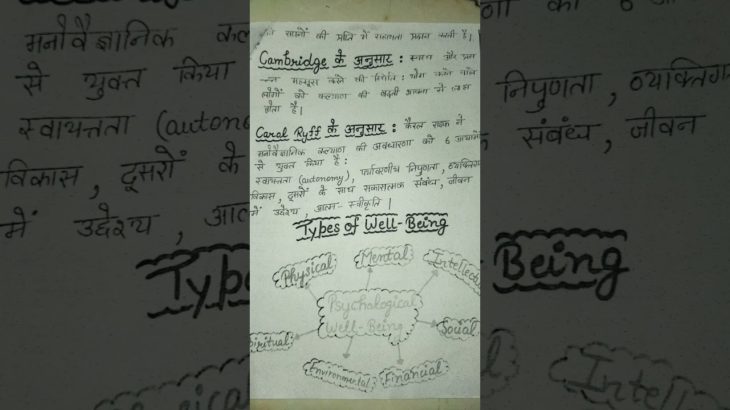 साधनों की प्राप्ति में सहायता प्रदान करती है।
Cambridge के अनुसार : स्वस्थ और
महसूस करने की स्थिति : योग करने वाले
लोगों को कल्याण की बढ़ती भावना से लाभ
होता है।
Caral Ryff के अनुसार : कैरल राइफ ने
मनोवैज्ञानिक कल्याण की अवधारणा को 6 आयामों
से युक्त किया है :
स्वायत्तता (autonomy), पर्यावरणीय निपुणता, व्यक्तिगत
विकास, दूसरों के साथ सकारात्मक संबंध, जीवन
में उद्देश्य, आत्म-स्वीकृति |
Types of Well-Being
Physical
Mental
Intellectu
Psychological
Well-Being
Social
Spiritual
Environmental
Financial